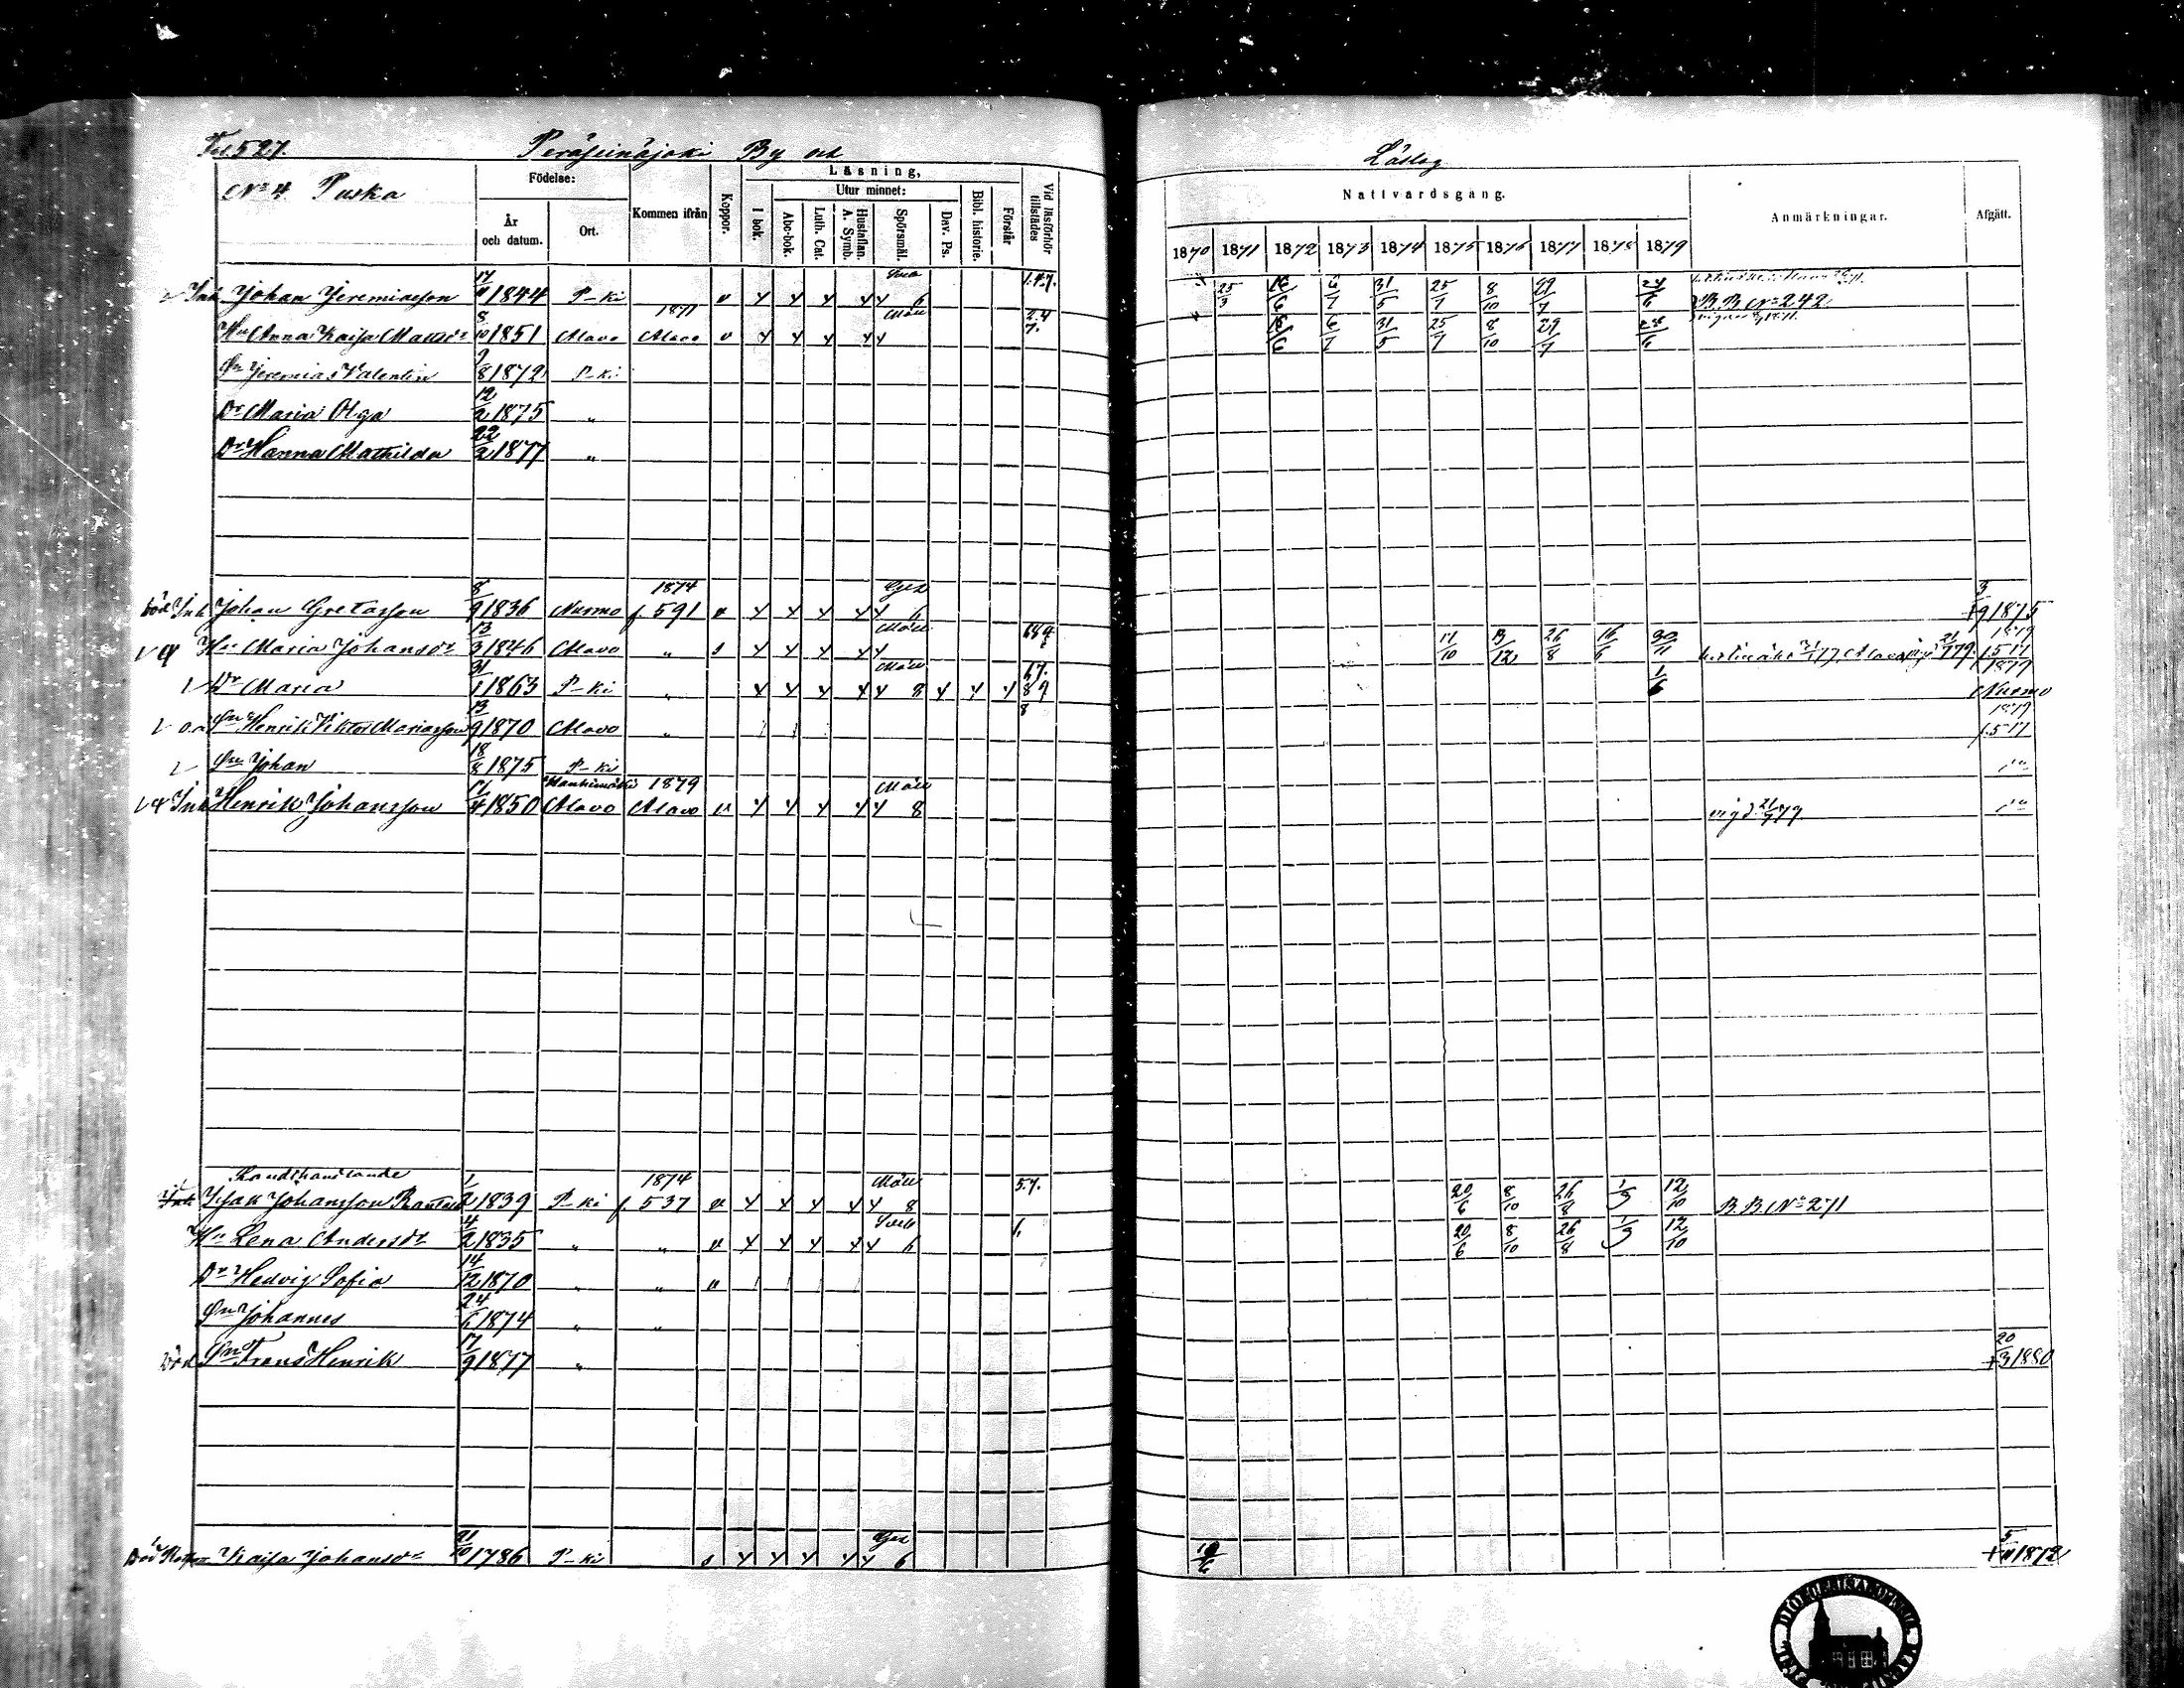 Fol 527. Peräseinäjoki By och Läslag
No 4 Puska
Födelse: År och datum. Ort. Kommen ifrån Koppor. Läsning, I bok. Utur minnet: Abc-bok. Luth. Cat. Hustaflan. A. Symb. Spörsmål. Dav. Ps. Bibl. historie. Förstår Vid läsförhör tillstädes
Nattvardsgång. Anmärkningar. Afgått.
1870 1871 1872 1873 1874 1875 1876 1877 1878 1879
Inh Johan Jeremiasson 17/11 1844 P-ki v 6 1.4.7. 25/3 16/6 6/7 31/5 25/7 8/10 29/7 24/6 B.B. No 242
Hu Anna Kaisa Mattsdr 8/10 1851 Alavo 1871 Alavo v Måtl 2.4 7. 16/6 6/7 31/5 25/7 8/10 29/7 24/6
Sn Jeremias Valentin 9/8 1872 P-ki
Dr Maria Olga 12/2 1875 "
Dr Hanna Mathilda 22/2 1877 "
död Inh Johan Gretasson 8/9 1836 Nurmo 1874 f. 591 v 6 3/9 1875
Hu Maria Johansdr 13/3 1846 Alavo " s Måtl 689 11/10 13/12 26/8 16/6 30/11 1879 f. 517
Dr Maria 31/1 1863 P-ki " Måtl 8 67. 89 1/6 1879 Nurmo
o.ä. Sn Henrik Viktor Mariasson 13/9 1870 Alavo " 8 1879 f. 517
Sn Johan 18/8 1875 P-ki
Inh Henrik Johansson 17/4 1850 Alavo 1879 Alavo v Måtl 8 vigd 21/9 79
Landthandlande
Inh Isak Johansson Rantala 1/2 1839 P-ki 1874 f. 537 v Måtl 8 57. 20/6 8/10 26/8 1/9 12/10 B.B. No 271
Hu Lena Andersdr 4/2 1835 " " v 6 6 20/6 8/10 26/8 1/9 12/10
Dr Hedvig Sofia 14/12 1870 " " v
Sn Johannes 24/6 1874 " "
död Sn Frans Henrik 17/9 1877 " 20/3 1880
Död Kaisa Johansdr 21/10 1786 P-ki s 6 19/6 5/11 1872